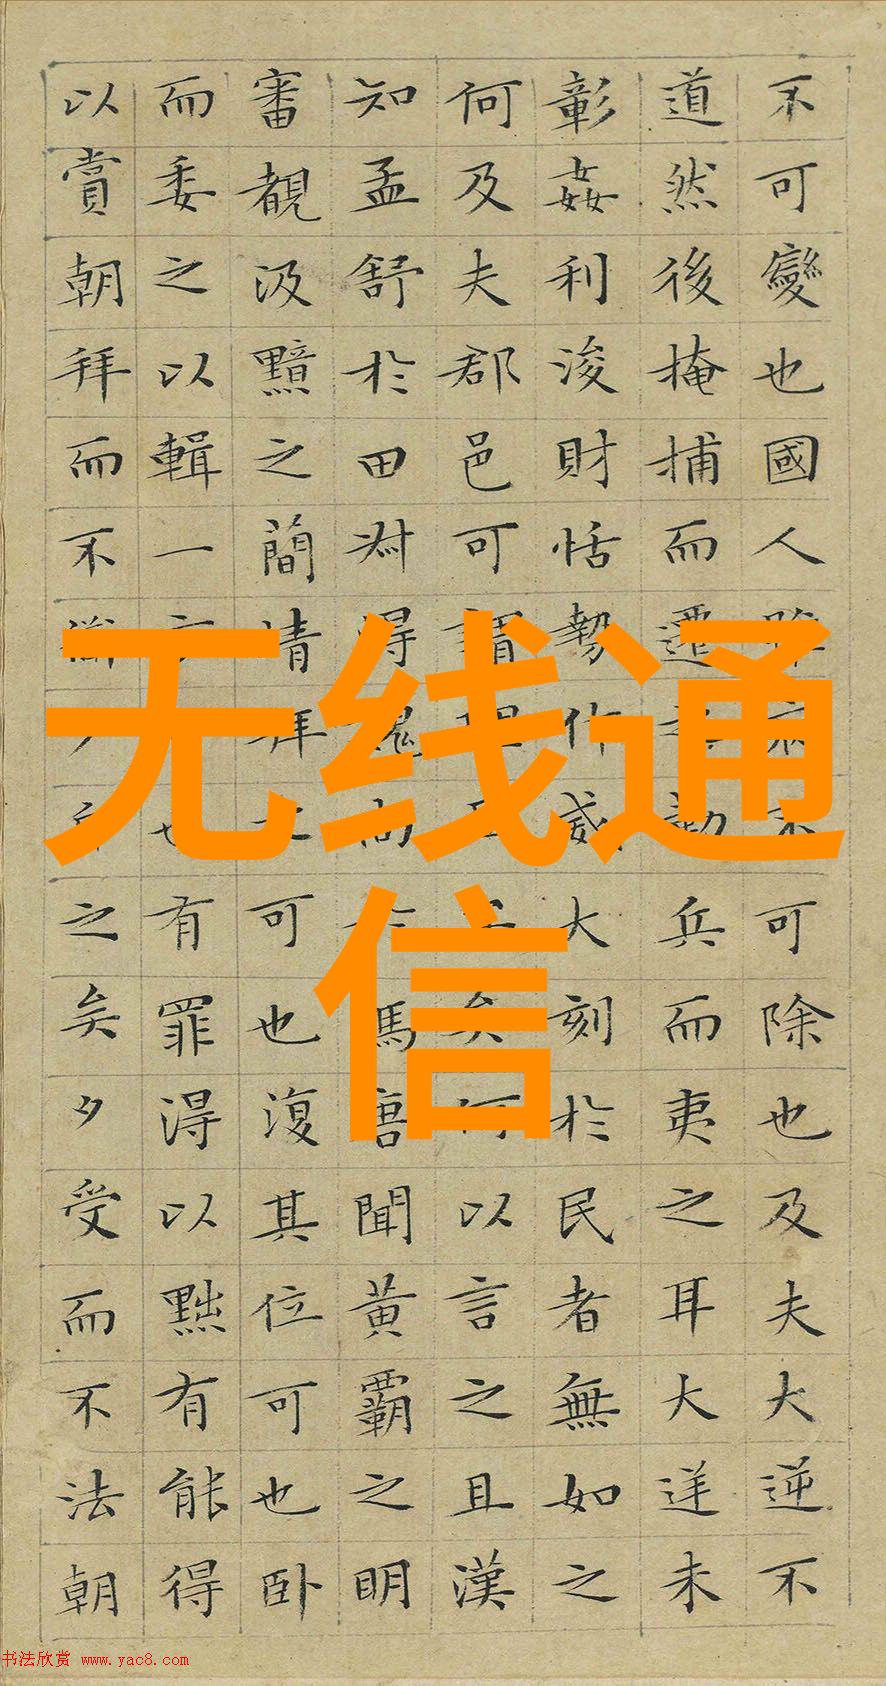 不可變也國人可除也及夫大逆不
道然後掩捕而遷之勒兵而夷之耳大逆未
彰姦利浚財恬勢作威大刻於民者無如之
何及夫郡邑可謂理矣何以言之且漢
知孟舒於田叔得魏尚於馮唐聞黃霸之明
審覩汲黯之簡靖拜之可也復其位可也卧
而委之以輯一方也有罪得以黜有能得
以賞朝拜而不之矣夕受而不法朝
无线通
信
书法欣赏 www.yac8.com